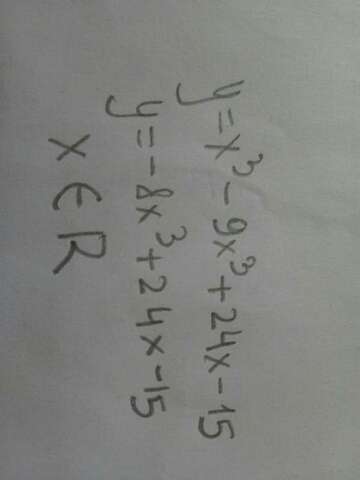 y=x³-9x³+24x-15
y=-8x³+24x-15
x∈R